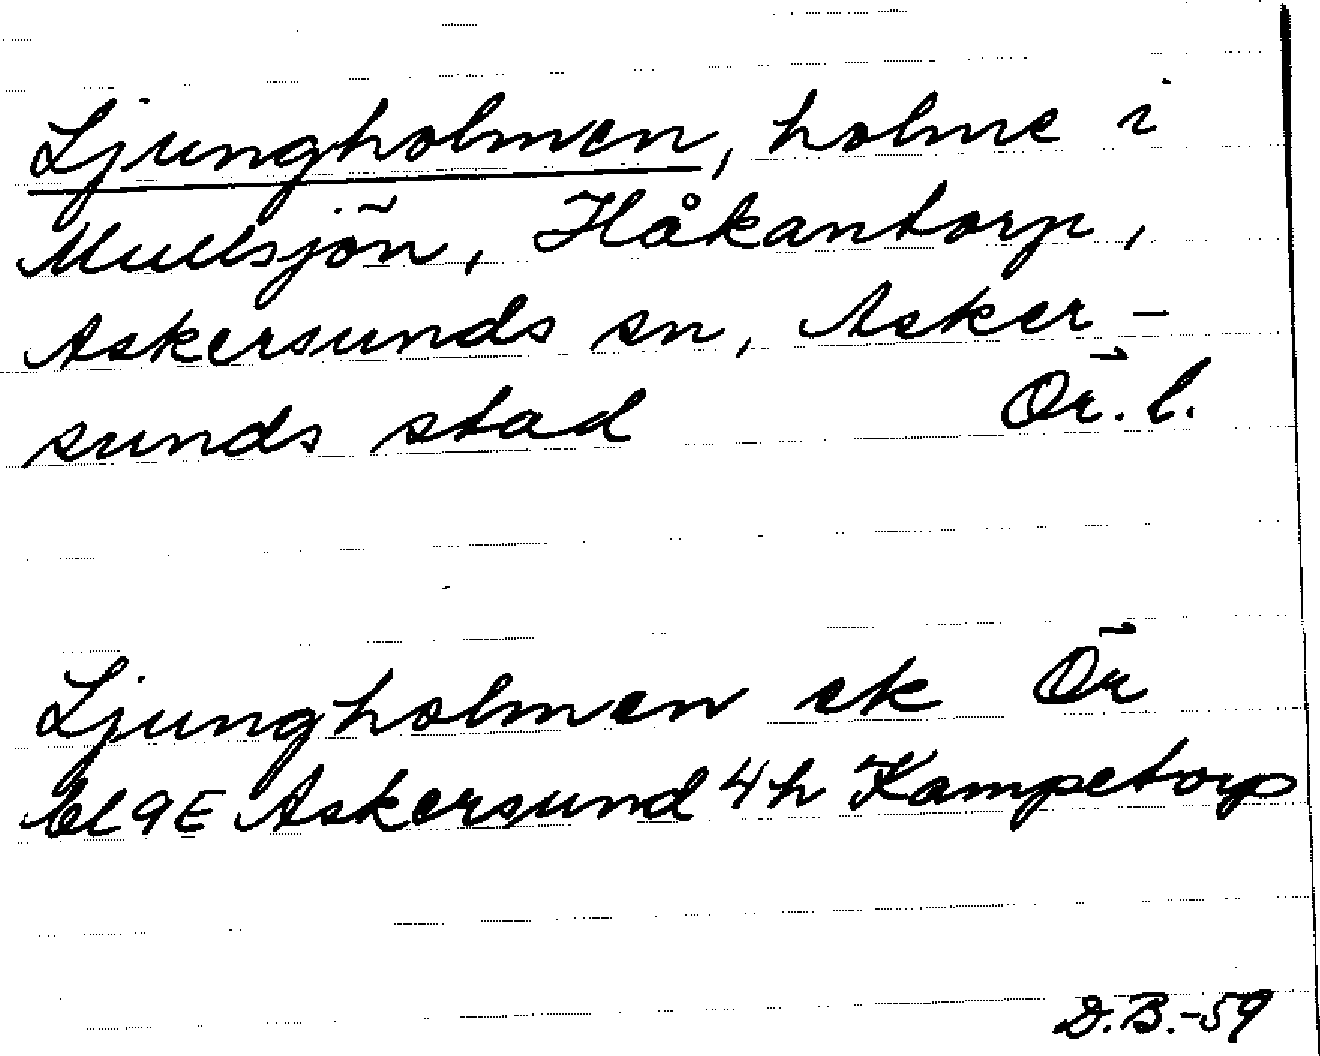 Ljungholmen, holme i
Mullsjön, Håkantorp,
Askersunds sn, Asker-
sunds stad Ör. l.
Ljungholmen ek Ör
Bl 9E Askersund 4h Kampetorp
D.B.-59